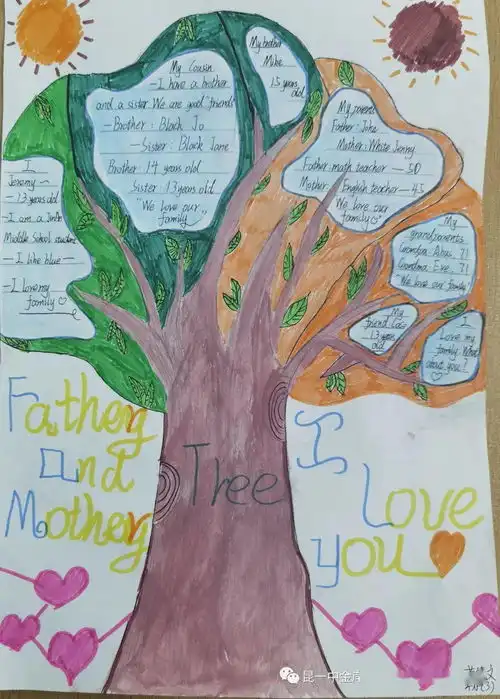 My brother
Mike
13 years
old
My Cousin
—I have a brother
and a sister We are good friends
—Brother: Black Jo
—Sister: Black Jane
Brother 14 years old
Sister 13 years old
"We love our
family"
My parents
Father: John
Mother: White Jenny
Father math teacher — 50
Mother English teacher — 45
We love our
family♡
I
Jeremy
—13 years old
—I am a Junior
Middle School student
—I like blue—
—I love my
family♡
My
grandparents
Grandpa: 71
Grandma: Eve 71
"We love our family"
My
friend
13 years
old
I
Love my
family What
about you?
♡
Father
and
Mother
Tree
I
Love
you
昆一中金岸